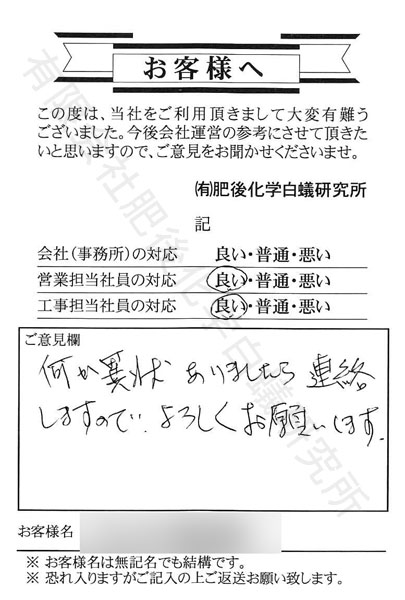 お客様へ
この度は、当社をご利用頂きまして大変有難う
ございました。今後会社運営の参考にさせて頂きた
いと思いますので、ご意見をお聞かせくださいませ。
㈲肥後化学白蟻研究所
記
会社(事務所)の対応 良い・普通・悪い
営業担当社員の対応 良い・普通・悪い
工事担当社員の対応 良い・普通・悪い
ご意見欄
何か異状ありましたら連絡
しますので、よろしくお願いします。
お客様名
※ お客様名は無記名でも結構です。
※ 恐れ入りますがご記入の上ご返送お願い致します。
有限会社肥後化学白蟻研究所